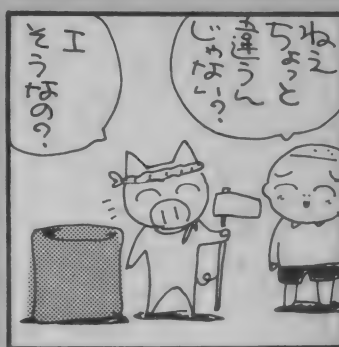 ねえ
ちょっと
違うん
じゃない?
エ
そうなの?